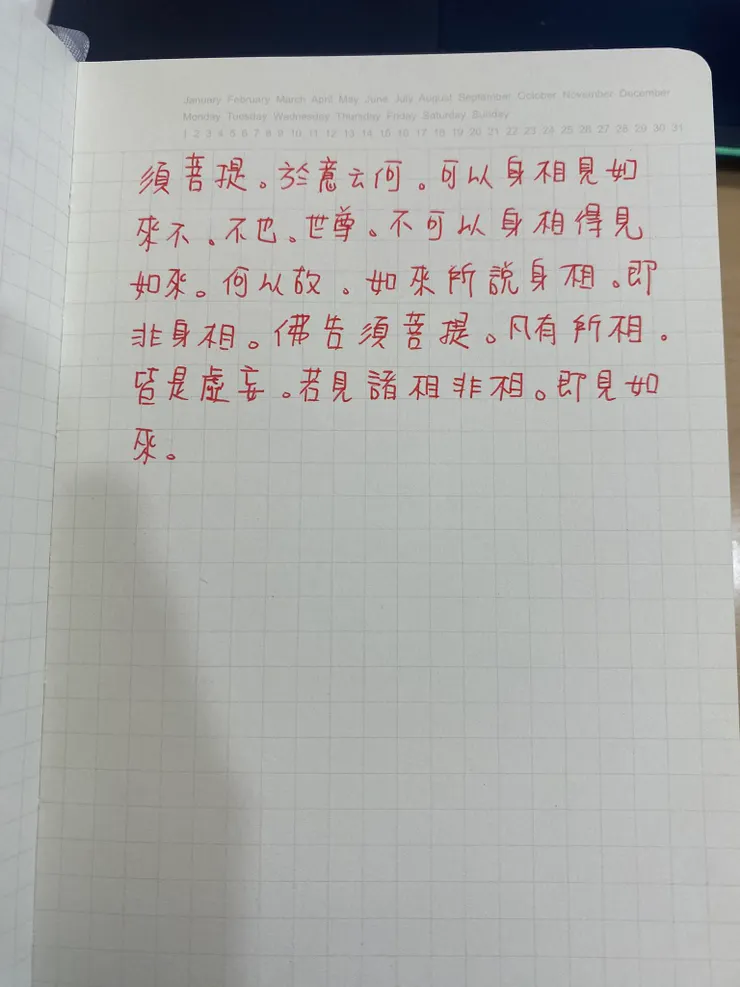 January February March April May June July August September October November December
Monday Tuesday Wednesday Thursday Friday Saturday Sunday
1 2 3 4 5 6 7 8 9 10 11 12 13 14 15 16 17 18 19 20 21 22 23 24 25 26 27 28 29 30 31
須菩提。於意云何。可以身相見如
來不。不也。世尊。不可以身相得見
如來。何以故。如來所說身相。即
非身相。佛告須菩提。凡有所相。
皆是虛妄。若見諸相非相。即見如
來。